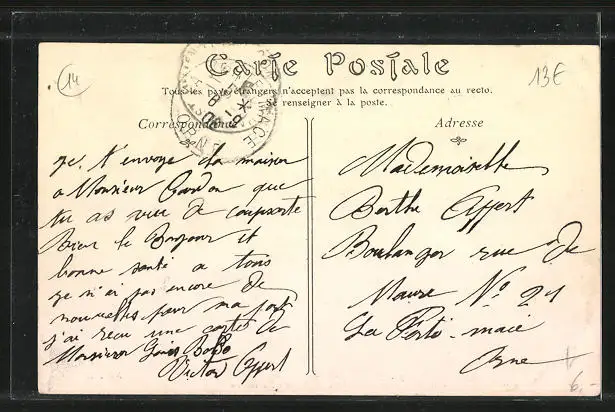 14
Carte Postale
13€
Tous les pays étrangers n'acceptent pas la correspondance au recto.
Se renseigner à la poste.
Correspondance
je t'envoye la maison
a Monsieur que
tu as vue de
Bien le Bonjour et
bonne santé a tous
je n'ai pas encore de
nouvelles pour ma part
j'ai recu une carte de
Monsieur Louis
Victor Appert
Adresse
Mademoiselle
Berthe Appert
Boulanger rue de
N° 21
La Ferté-macé
Orne
6,-
MACÉ
ORNE